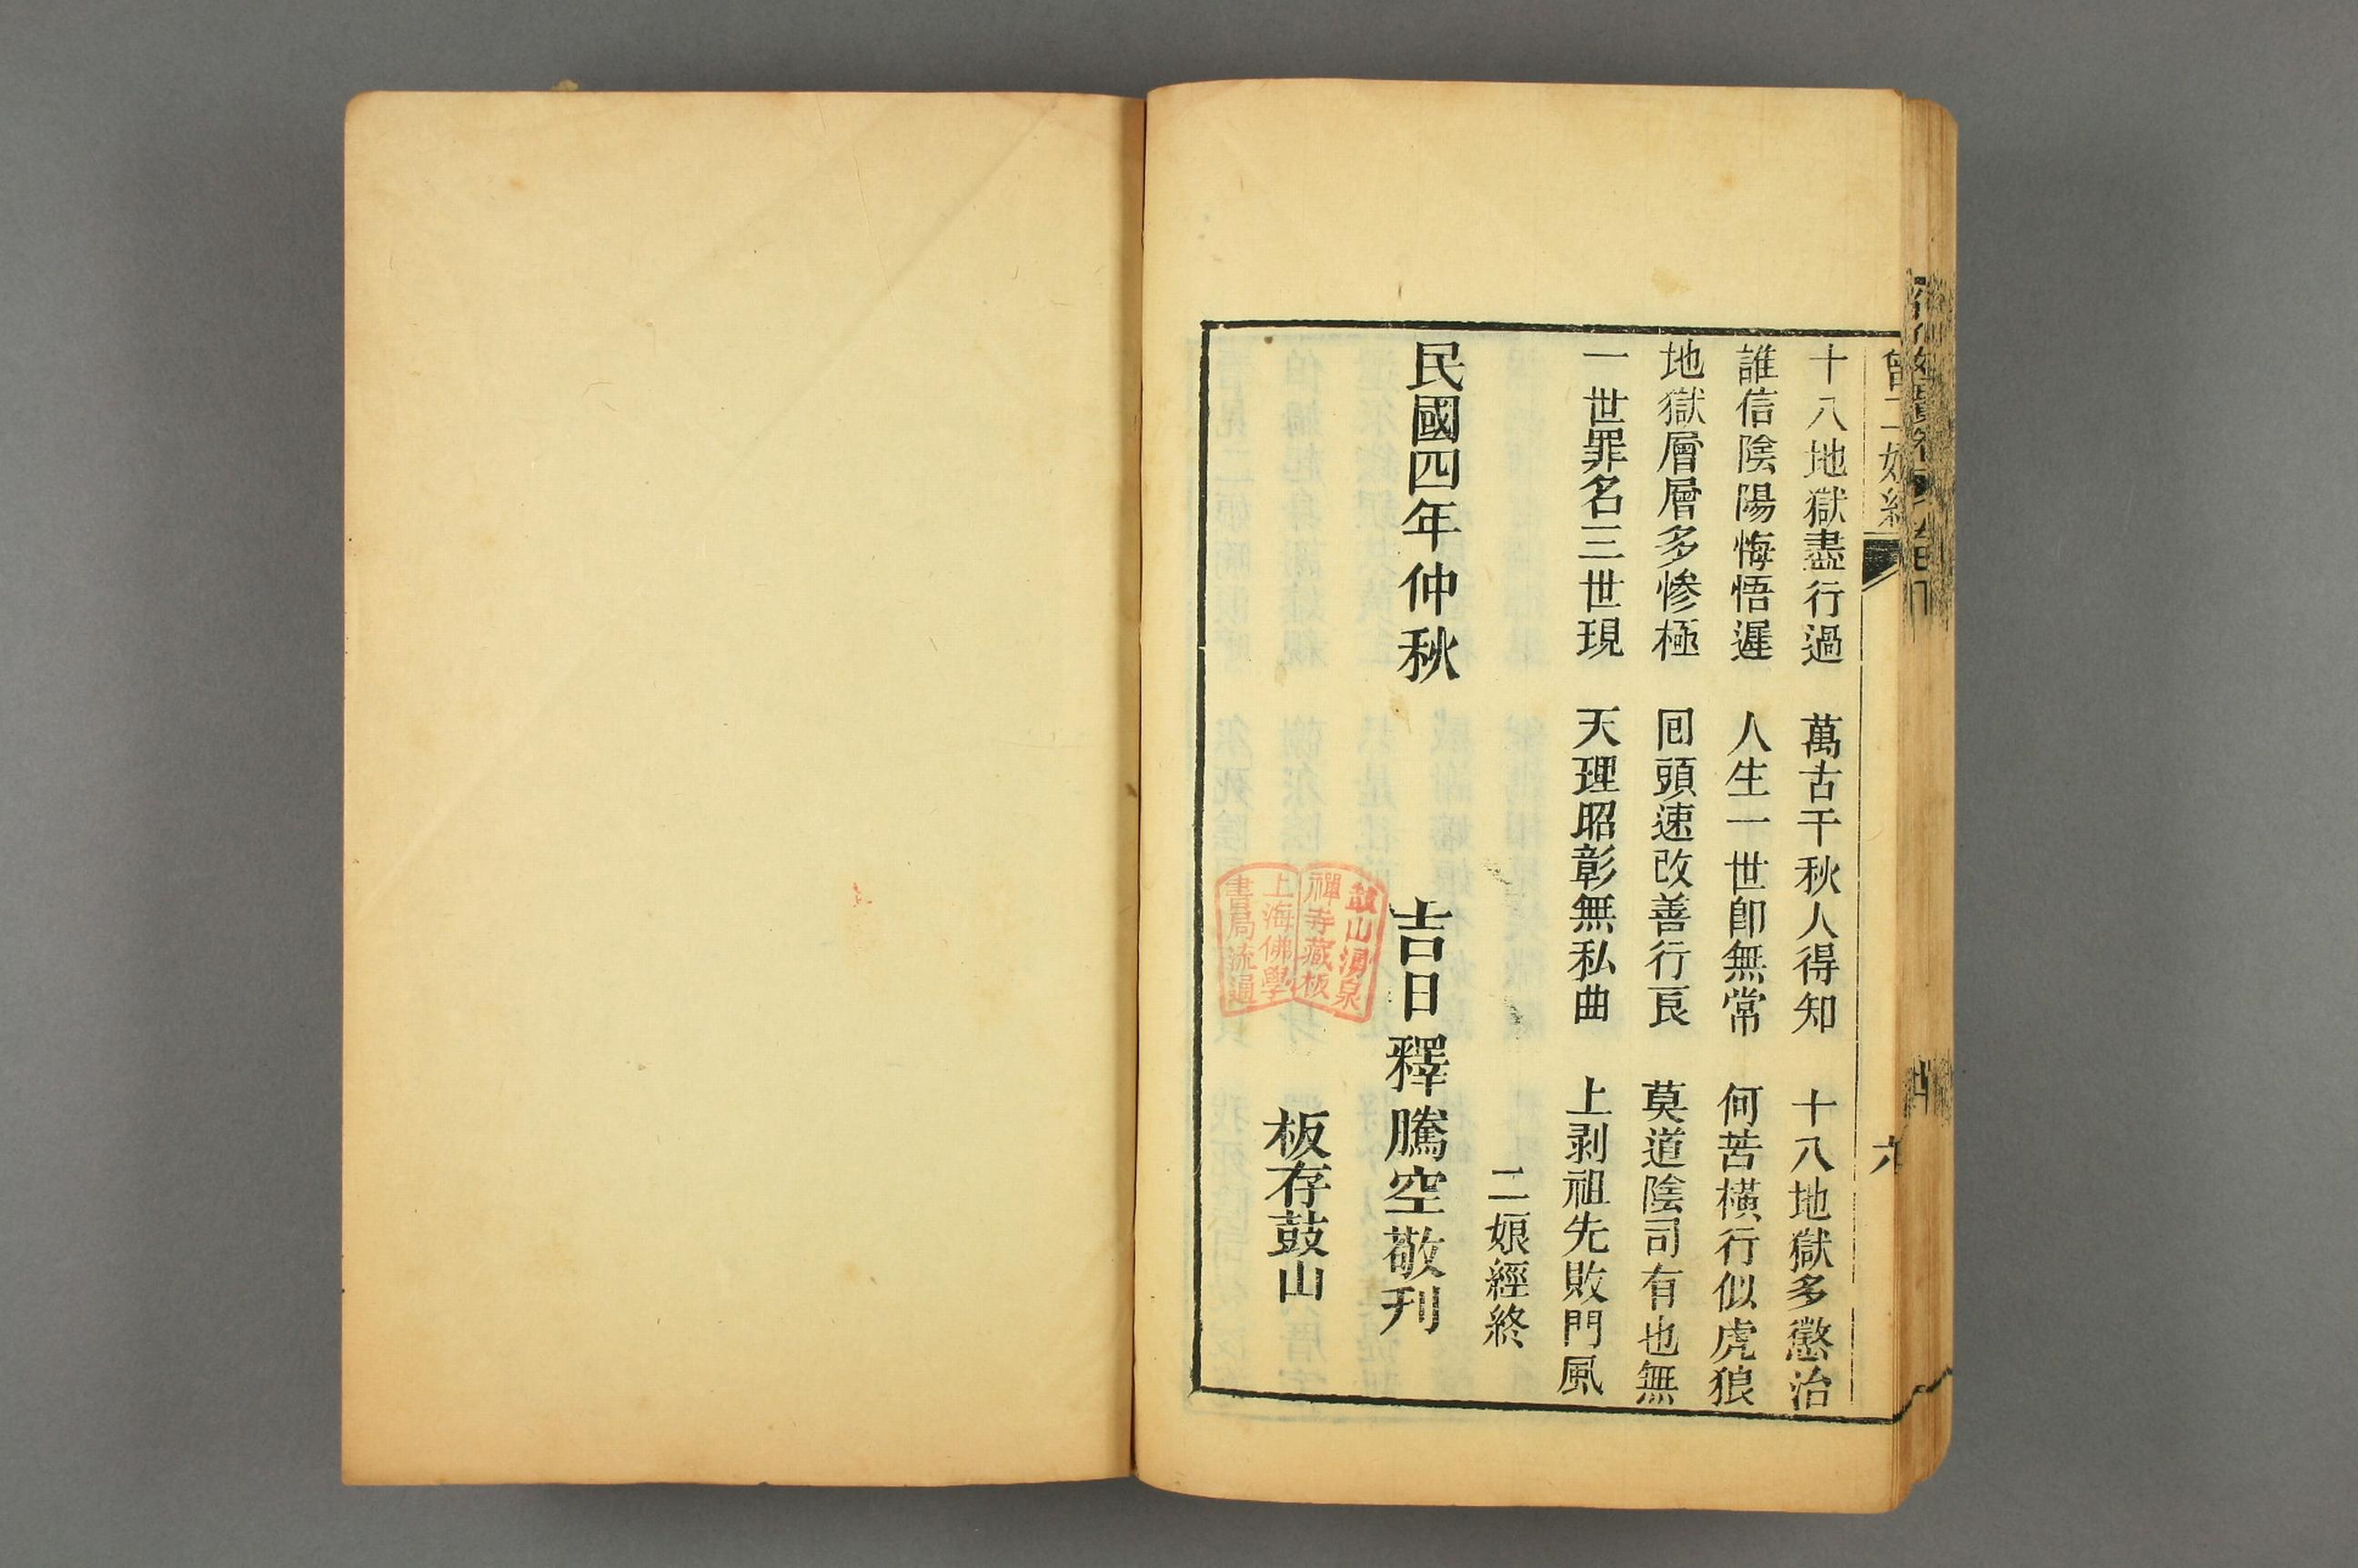 曾二娘經
六
十八地獄盡行過 萬古千秋人得知 十八地獄多懲治
誰信陰陽悔悟遲 人生一世卽無常 何苦橫行似虎狼
地獄層層多慘極 囘頭速改善行良 莫道陰司有也無
一世罪名三世現 天理昭彰無私曲 上剥祖先敗門風
二娘經終
民國四年仲秋 吉日釋騰空敬刊
板存鼓山
鼓山湧泉
禪寺藏板
上海佛學
書局流通